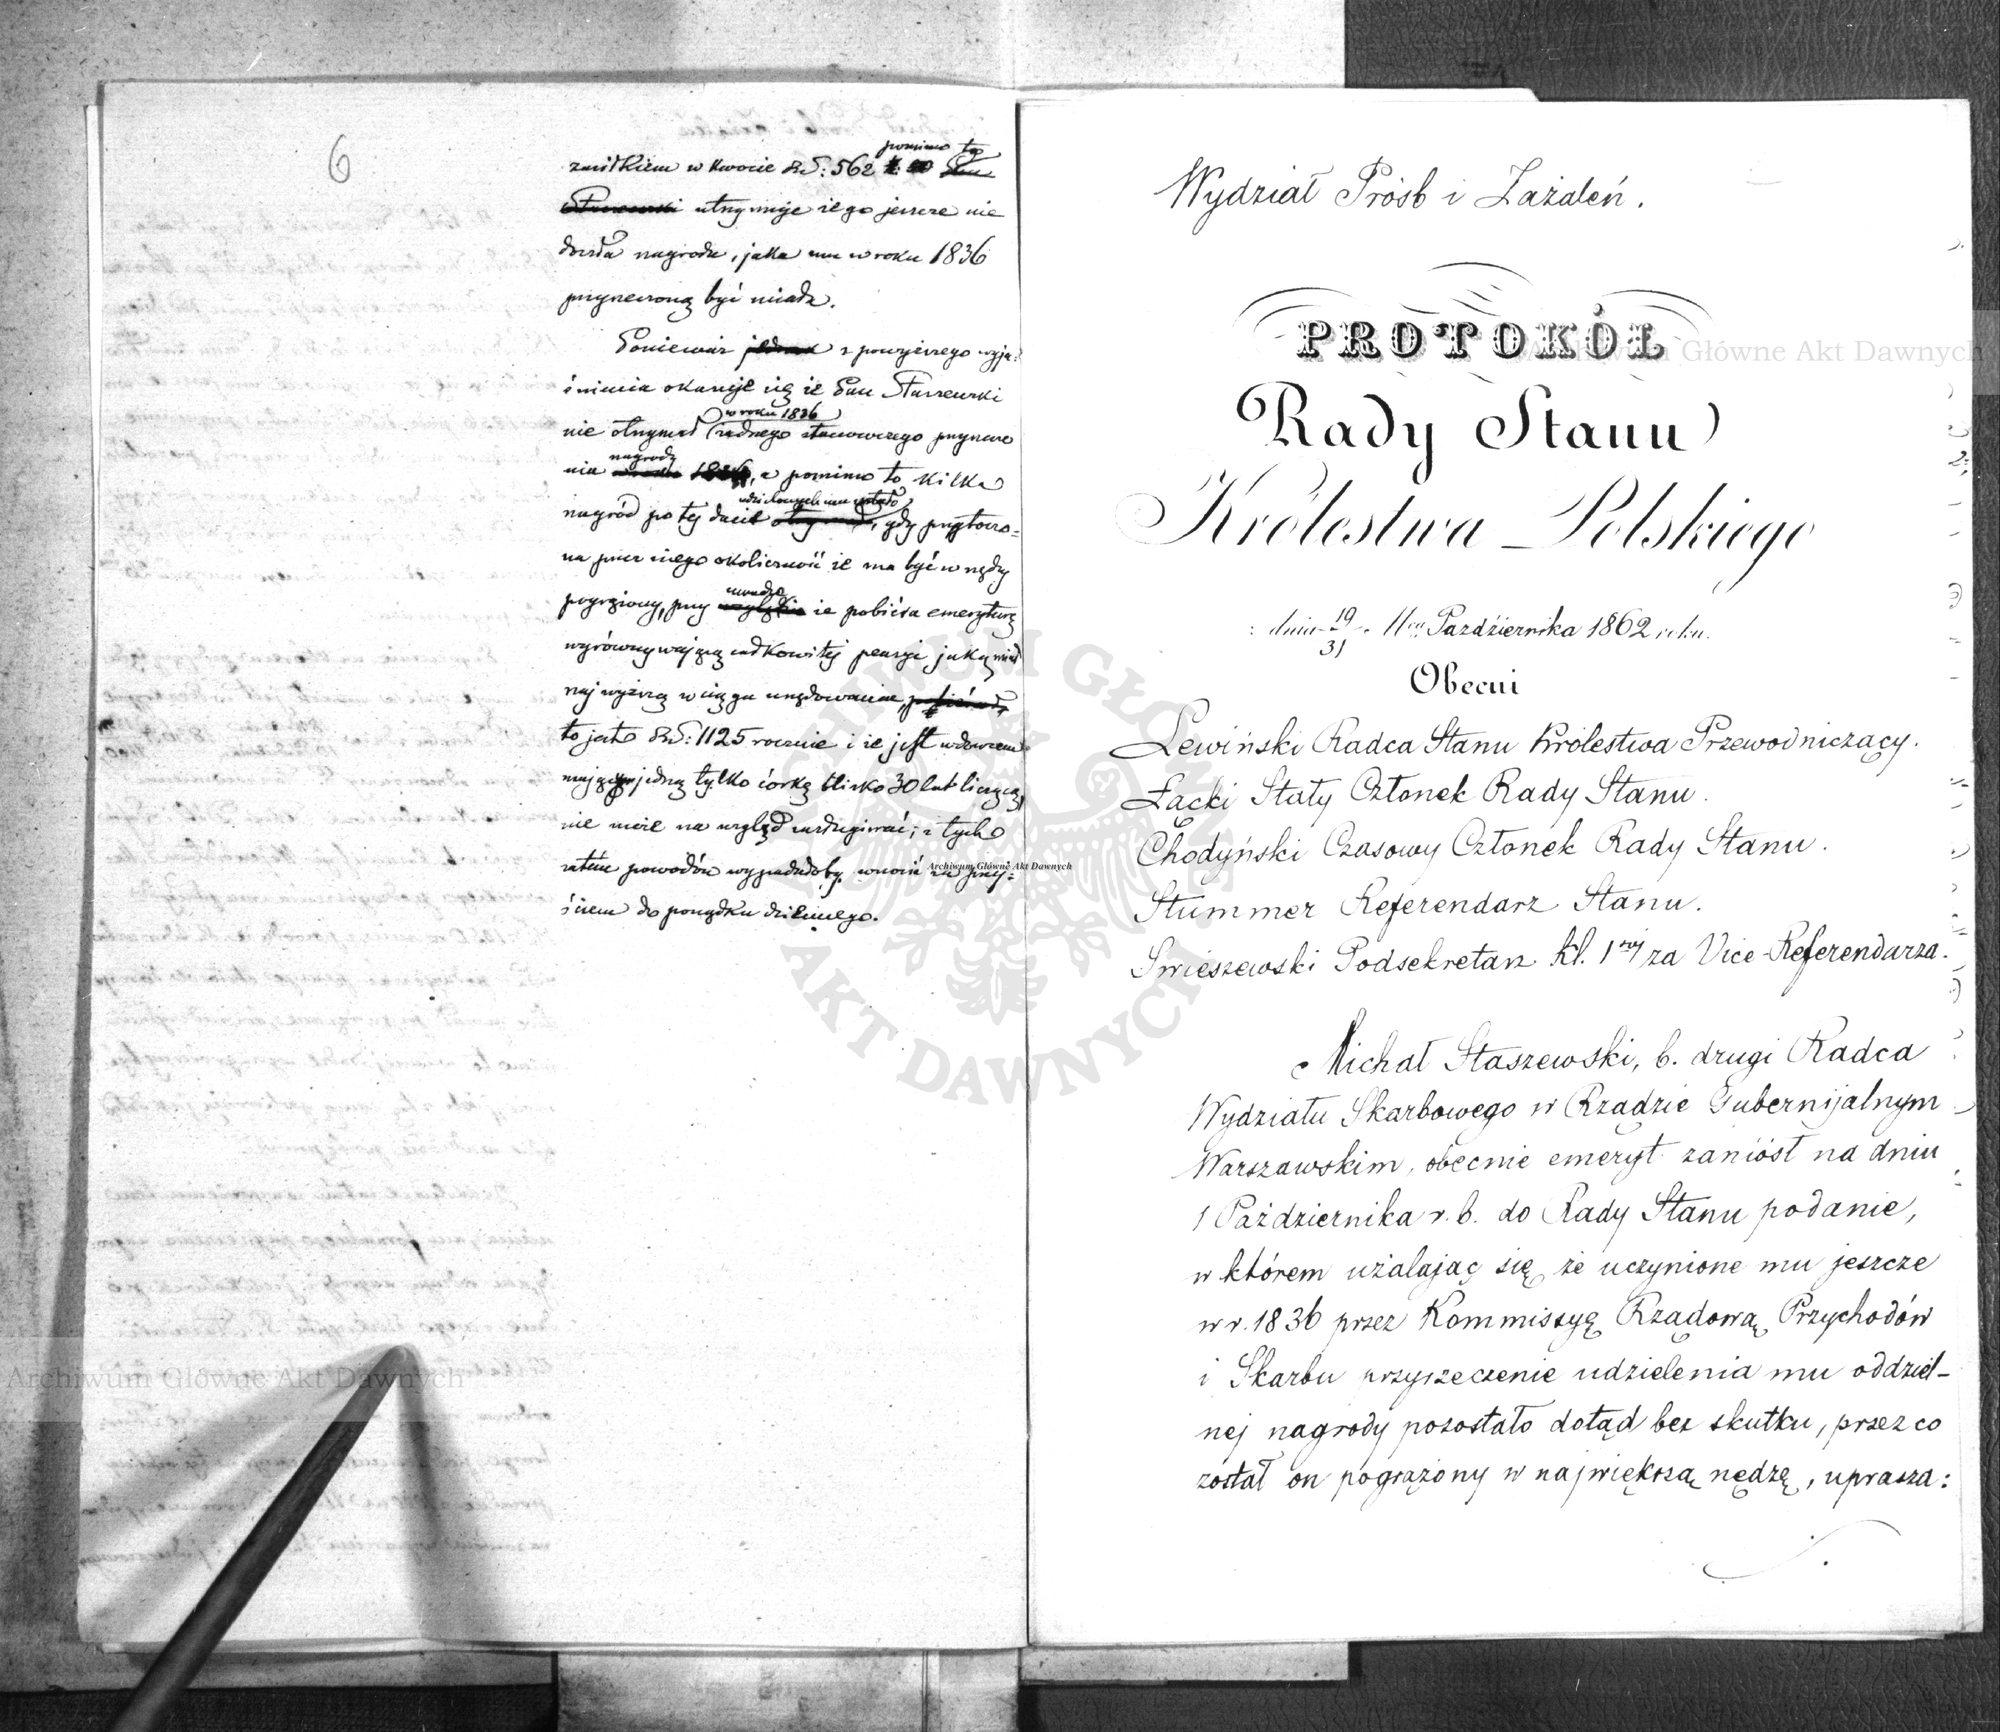 6
zasiłkiem w kwocie Rs: 562 pomimo to
utrzymuje iż go jeszcze nie
doszła nagroda, jaka mu w roku 1836
przyrzeczoną być miała.
Ponieważ z powyższego wyja=
śnienia okazuje się że Pan Staszewski
w roku 1836
nie otrzymał żadnego stanowczego przyrzecze
nagrody
nia a pomimo to kilka
udzielonych mu zostało
nagród po tej dacie gdy przytoczo=
na przez niego okoliczność że ma być w nędzy
pogrążony, przy uwadze że pobiera emeryturę
wyrównywającą całkowitej pensyi jaką miał
najwyższą w ciągu urzędowania,
to jest Rs: 1125 rocznie i że jest wdowcem
mającym jedną tylko córkę blisko 30 lat liczącą,
nie może na wzgląd zasługiwać; z tych
zatem powodów wypadałoby wnosić za przej=
ściem do porządku dziennego.
Wydział Próśb i Zażaleń.
PROTOKÓŁ
Rady Stanu
Królestwa Polskiego
dnia 19/31 Października 1862 roku.
Obecni
Lewiński Radca Stanu Królestwa Przewodniczący.
Łącki Stały Członek Rady Stanu.
Chodyński Czasowy Członek Rady Stanu.
Stummer Referendarz Stanu.
Swieszewski Podsekretarz Kl. 1ej za Vice-Referendarza.
Michał Staszewski, b. drugi Radca
Wydziału Skarbowego w Rządzie Gubernijalnym
Warszawskim, obecnie emeryt zaniósł na dniu
1 Października r. b. do Rady Stanu podanie,
w którem użalając się że uczynione mu jeszcze
w r. 1836 przez Kommissyę Rządową Przychodów
i Skarbu przyrzeczenie udzielenia mu oddziel-
nej nagrody pozostało dotąd bez skutku, przez co
został on pogrążony w największą nędzę, uprasza:
Archiwum Główne Akt Dawnych
Archiwum Główne Akt Dawnych
Archiwum Główne Akt Dawnych
ARCHIWUM GŁÓWNE AKT DAWNYCH